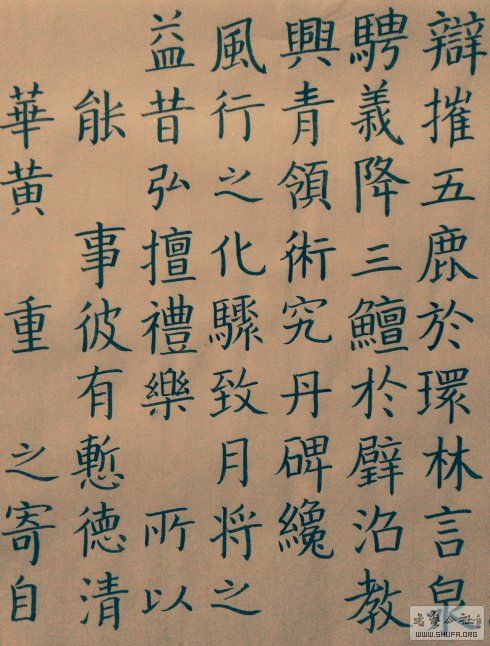 辯摧五鹿於環林言泉
騁義降三鱣於璧沼教
興青領術究丹碑纔
風行之化驟致月将之
益昔弘擅禮樂 所以
能 事彼有慙德清
華黄 重 之寄自
WWW.SHUFA.ORG